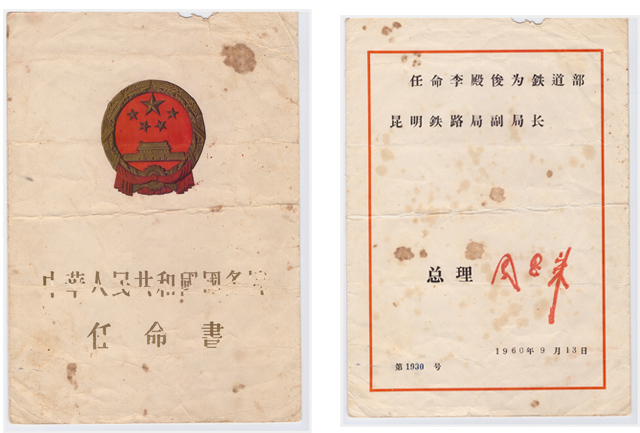 中华人民共和國国务院
任命書
任命李殿俊为鉄道部
昆明鉄路局副局长
总理 周恩来
1960年9月13日
第1930号